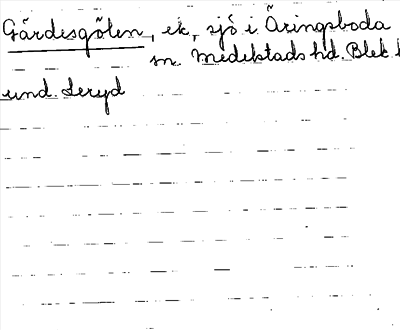 Gärdesgölen, ek, sjö i Äringsboda
sn. Medelstads hd. Blek. l
und. Leryd